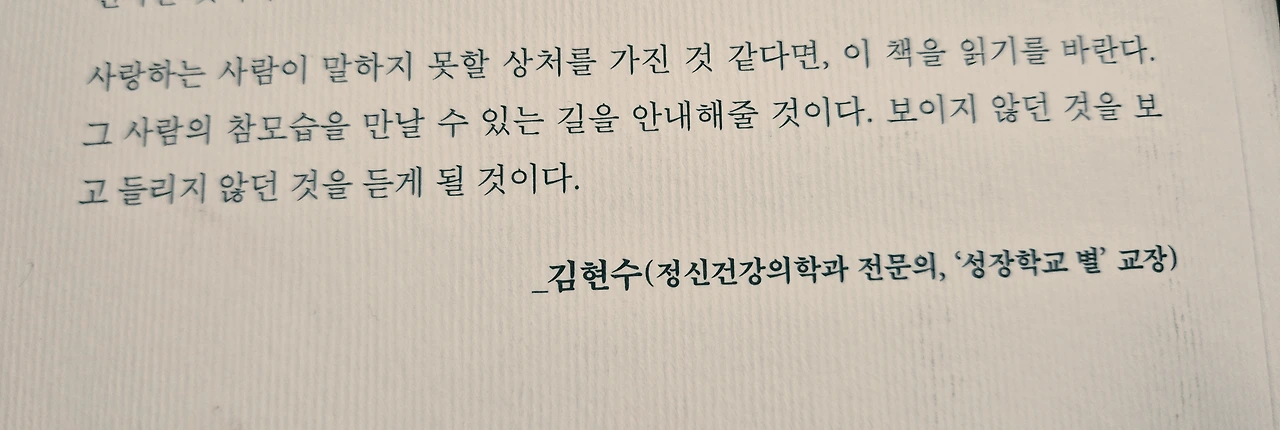 사랑하는 사람이 말하지 못할 상처를 가진 것 같다면, 이 책을 읽기를 바란다.
그 사람의 참모습을 만날 수 있는 길을 안내해줄 것이다. 보이지 않던 것을 보
고 들리지 않던 것을 듣게 될 것이다.
_김현수(정신건강의학과 전문의, ‘성장학교 별’ 교장)